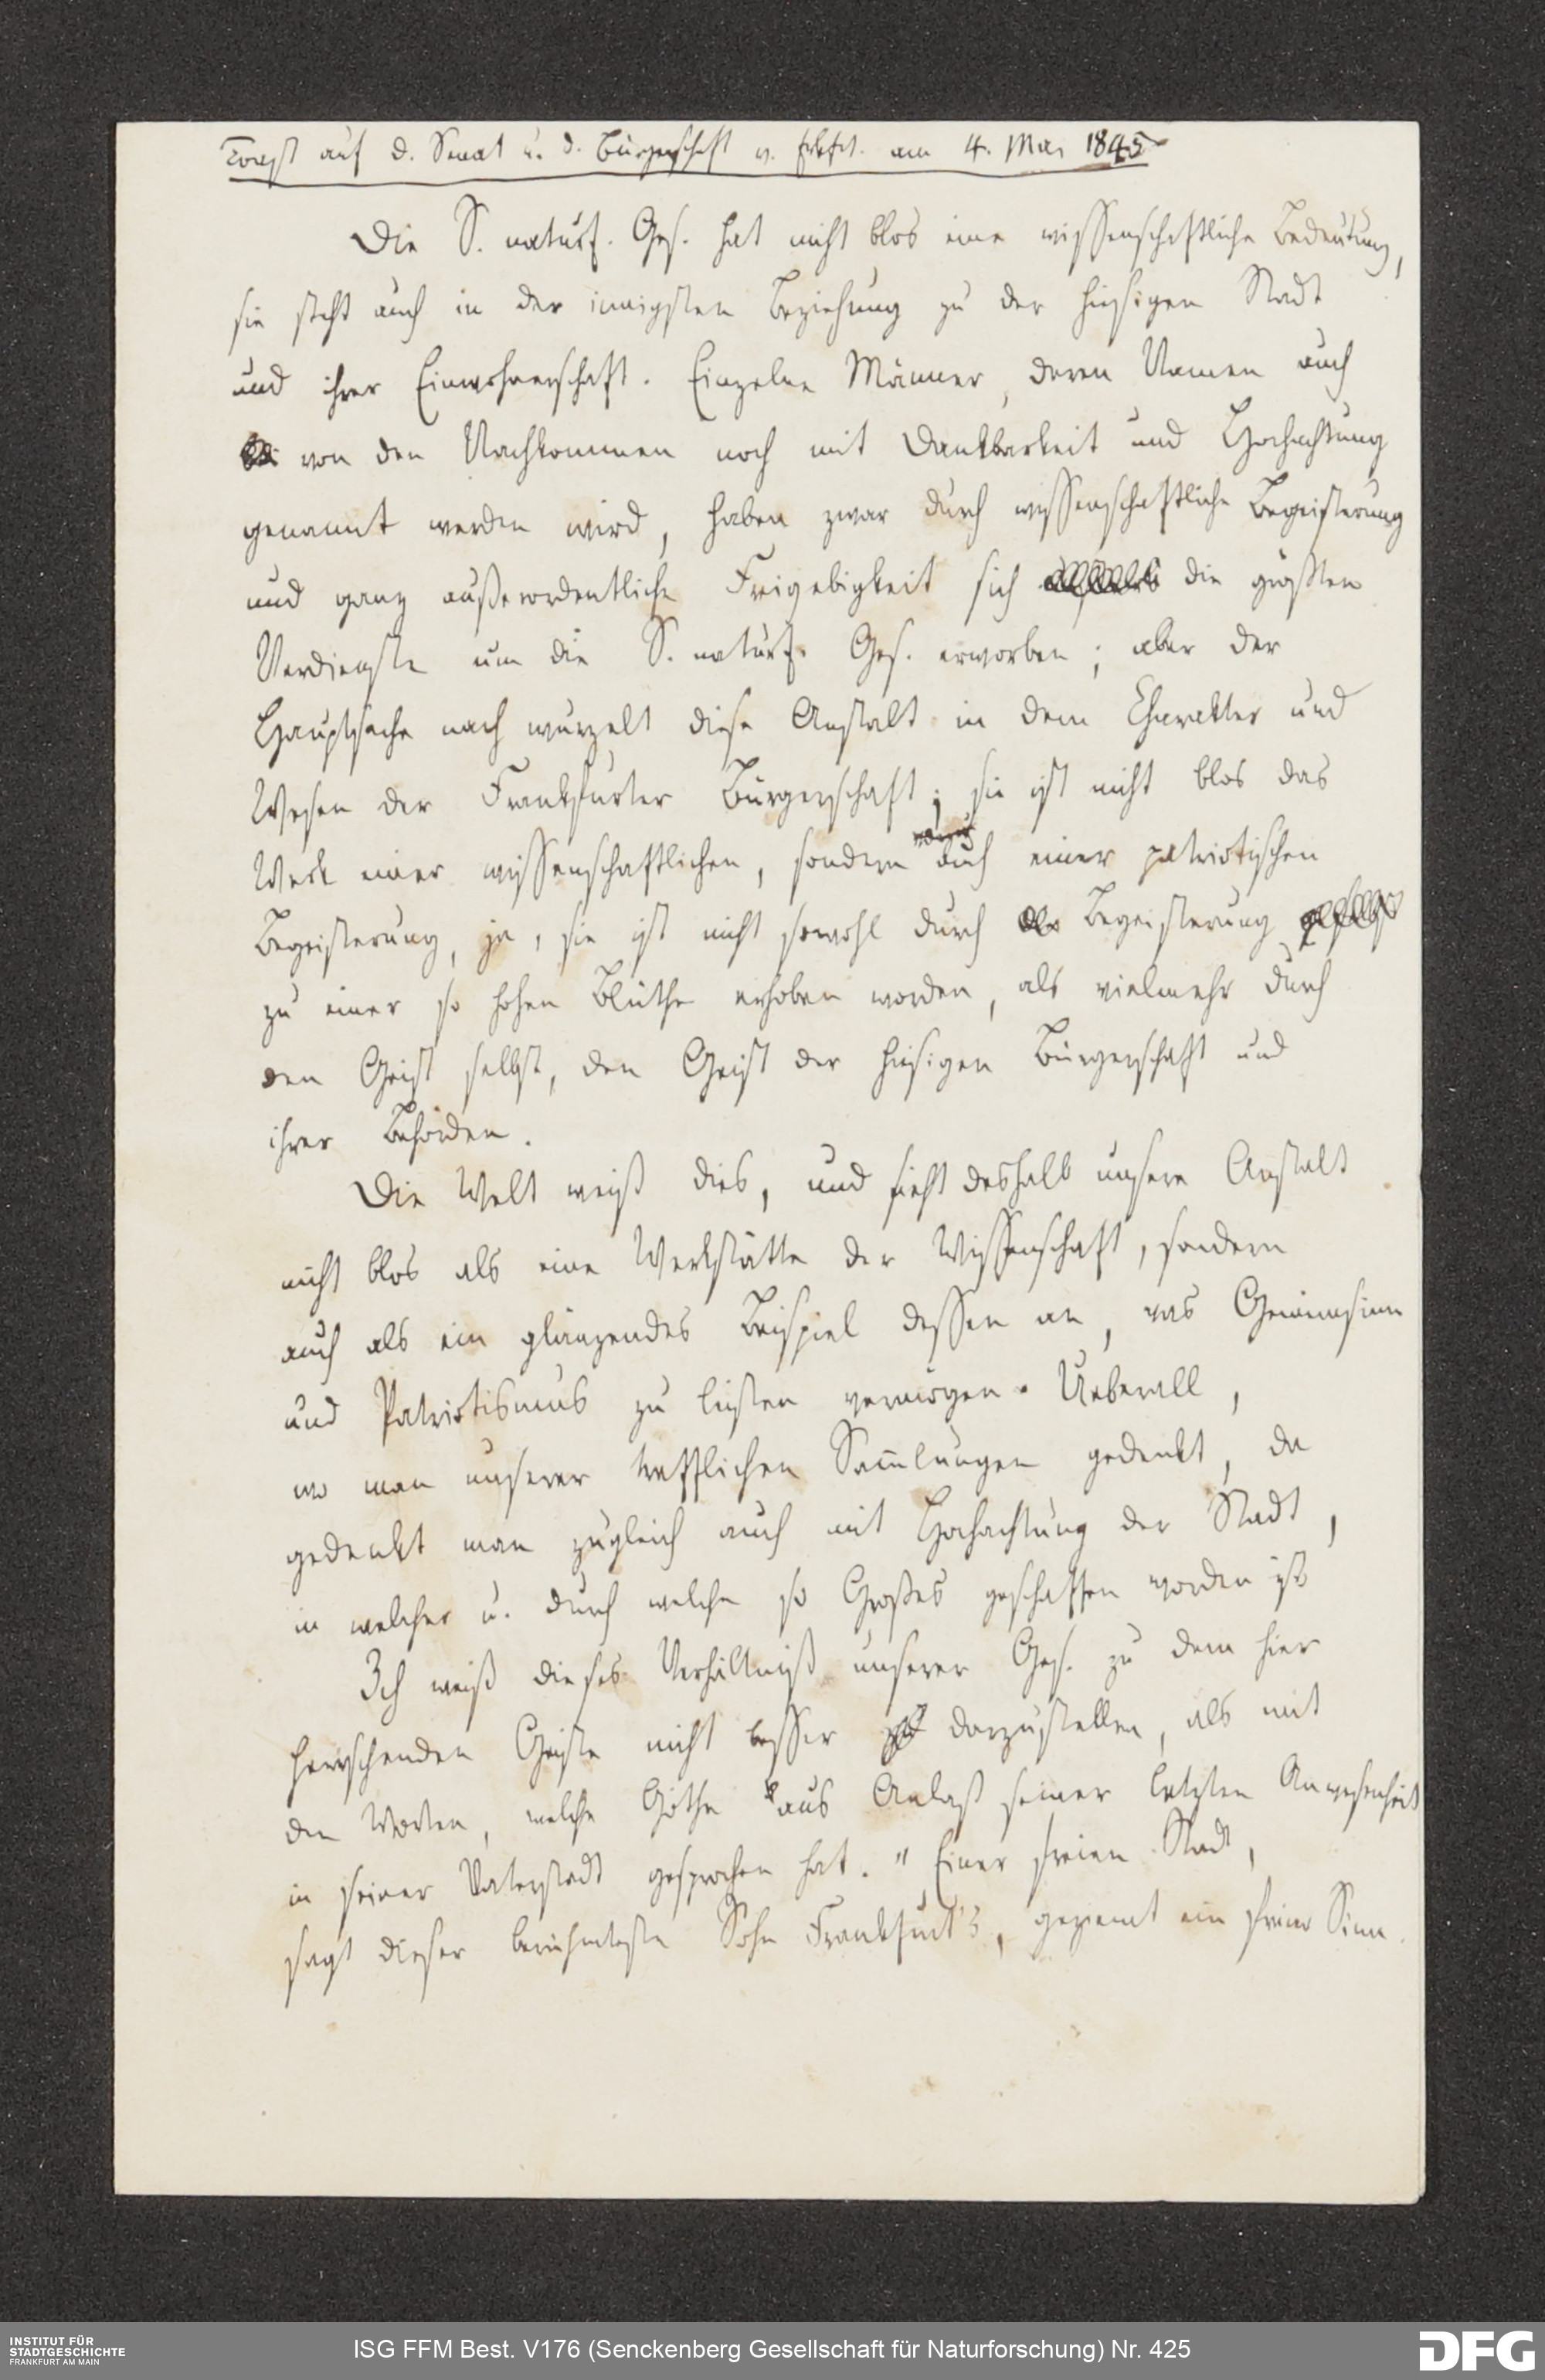 Toast auf d. Senat u. d. Bürgerschaft v. Frkfrt. am 4. Mai 1845
Die S. naturf. Ges. hat nicht blos eine wissenschaftliche Bedeutung,
sie steht auch in der innigsten Beziehung zu der hiesigen Stadt
und ihrer Einwohnerschaft. Einzelne Männer, deren Namen auch
von den Nachkommen noch mit Dankbarkeit und Hochachtung
genannt werden wird, haben zwar durch wissenschaftliche Begeisterung
und ganz außerordentliche Freigebigkeit sich die größten
Verdienste um die S. naturf. Ges. erworben; aber der
Hauptsache nach wurzelt diese Anstalt in dem Charakter und
Wesen der Frankfurter Bürgerschaft; sie ist nicht blos das
Werk einer wissenschaftlichen, sondern auch einer patriotischen
Begeisterung, ja, sie ist nicht sowohl durch Begeisterung
zu einer so hohen Blüthe erhoben worden, als vielmehr durch
den Geist selbst, den Geist der hiesigen Bürgerschaft und
ihrer Behörden.
Die Welt weiß dies, und sieht deshalb unsere Anstalt
nicht blos als eine Werkstätte der Wissenschaft, sondern
auch als ein glänzendes Beispiel dessen an, was Gemeinsinn
und Patriotismus zu leisten vermögen. Ueberall,
wo man unserer trefflichen Sam̅lungen gedenkt, da
gedenkt man zugleich auch mit Hochachtung der Stadt,
in welcher u. durch welche so Großes geschaffen worden ist
Ich weiß dieses Verhältniß unserer Ges. zu dem hier
herrschenden Geiste nicht besser darzustellen, als mit
den Worten, welche Göthe aus Anlaß seiner letzten Anwesenheit
in seiner Vaterstadt gesprochen hat. "Einer freien Stadt,
sagt dieser berühmteste Sohn Frankfurt's, geziemt ein freier Sinn.
INSTITUT FÜR
STADTGESCHICHTE
FRANKFURT AM MAIN
ISG FFM Best. V176 (Senckenberg Gesellschaft für Naturforschung) Nr. 425
DFG